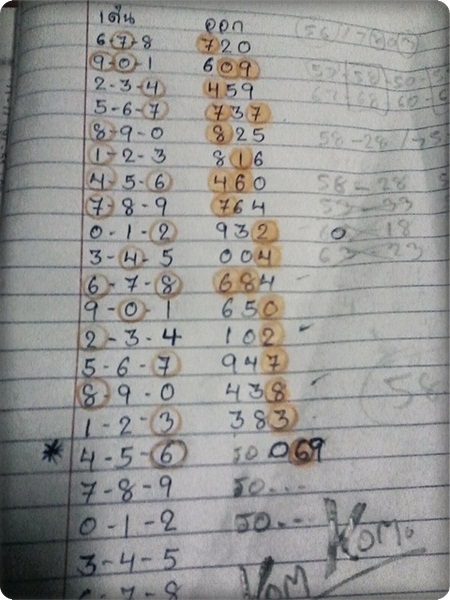 เด่น ออก
6-7-8 720
9-0-1 609
2-3-4 459
5-6-7 737
8-9-0 825
1-2-3 816
4-5-6 460
7-8-9 764
0-1-2 932
3-4-5 004
6-7-8 684
9-0-1 650
2-3-4 102
5-6-7 947
8-9-0 438
1-2-3 383
* 4-5-6 รอ 069
7-8-9 รอ...
0-1-2 รอ...
3-4-5
6-7-8
58-28
53-33
18
63-23
(58
Kom
Kom